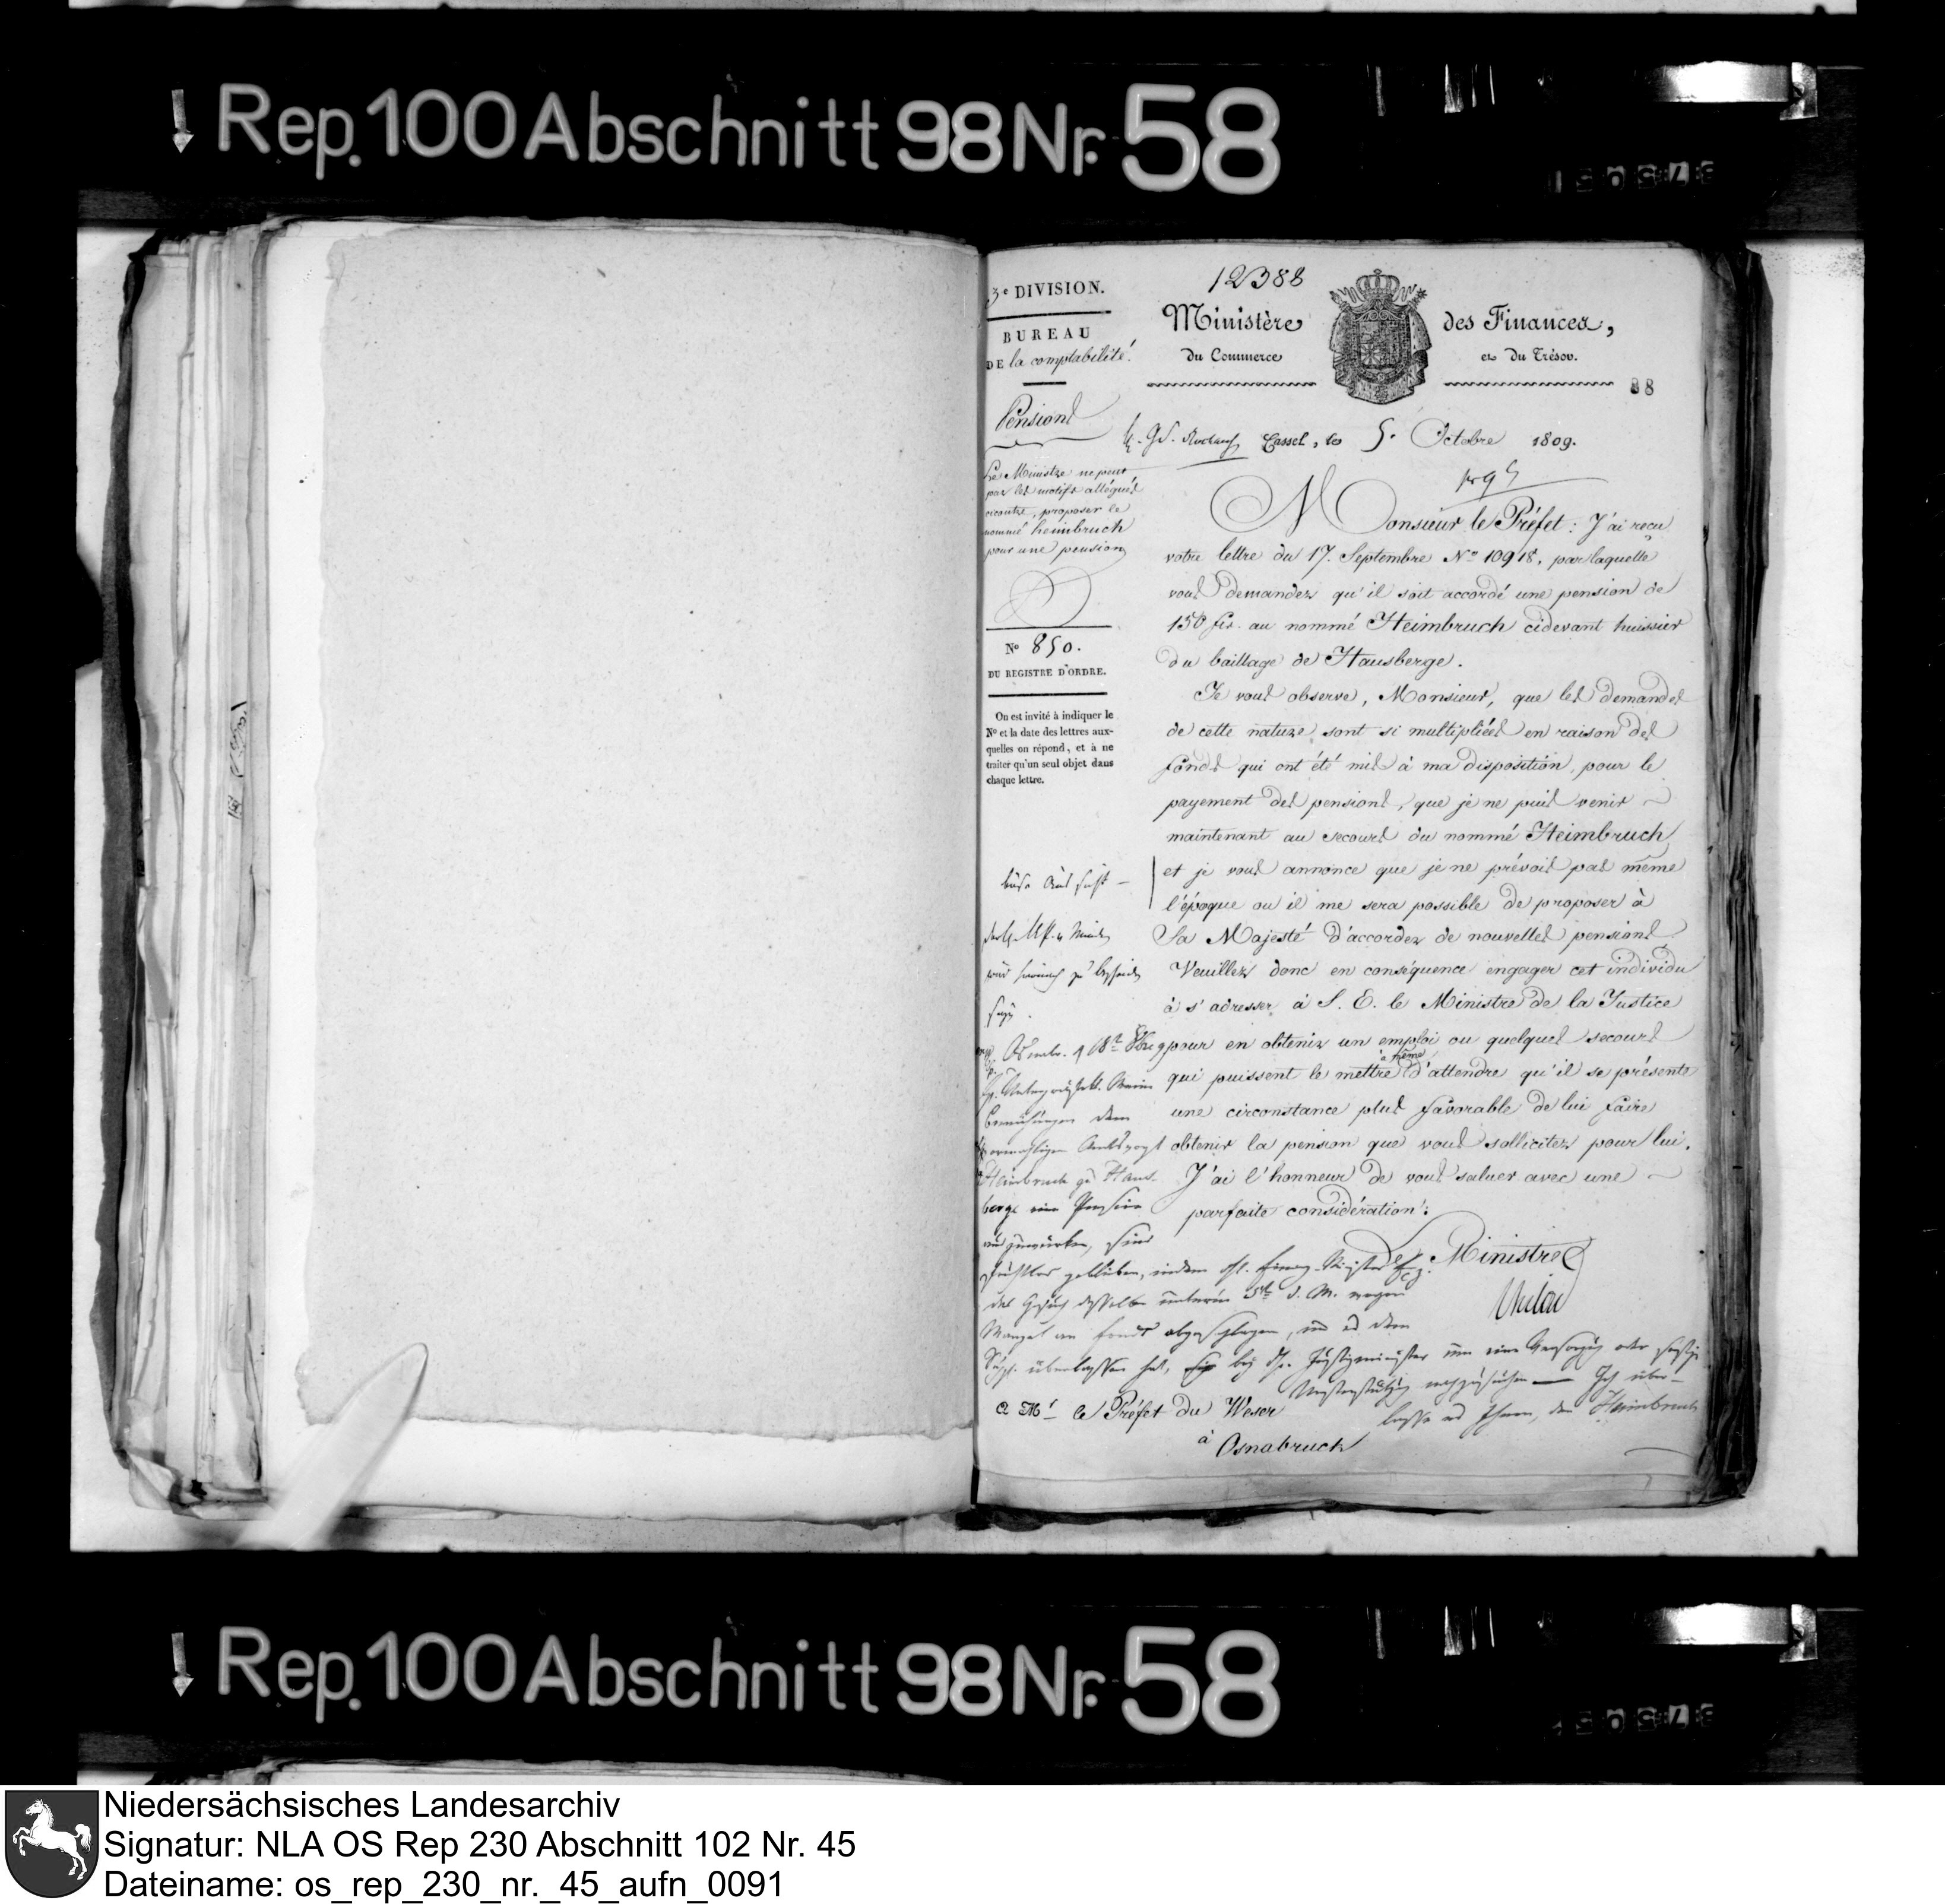 Rep. 100 Abschnitt 98 Nr. 58
3e DIVISION.
BUREAU
DE la comptabilité.
Pensions
Le Ministre ne peut
par les motifs allégués
cicontre, proposer le
nommé heimbruch
pour une pension
No 850.
DU REGISTRE D'ORDRE.
On est invité à indiquer le
No et la date des lettres aux-
quelles on répond, et à ne
traiter qu'un seul objet dans
chaque lettre.
12388
Ministère des Finances,
du Commerce et du Trésor.
88
Cassel, le 5. Octobre 1809.
Monsieur le Préfet: J'ai reçu
votre lettre du 17. Septembre No 10918, par laquelle
vous demandez qu'il soit accordé une pension de
150 frs. au nommé Heimbruch cidevant huissier
du baillage de Hausberge.
Je vous observe, Monsieur, que les demandes
de cette nature sont si multipliées en raison des
fonds qui ont été mis à ma disposition, pour le
payement des pensions, que je ne puis venir
maintenant au secours du nommé Heimbruch
et je vous annonce que je ne prévois pas même
l'époque ou il me sera possible de proposer à
Sa Majesté d'accorder de nouvelles pensions.
Veuillez donc en conséquence engager cet individu
à s'adresser à S. E. le Ministre de la Justice
pour en obtenir un emploi ou quelques secours
qui puissent le mettre à même d'attendre qu'il se présente
une circonstance plus favorable de lui faire
obtenir la pension que vous sollicitez pour lui.
J'ai l'honneur de vous saluer avec une
parfaite considération:
Le Ministre
böse Aussicht —
Bemühungen dem
vormahligen Amtsvogt
Heimbruch zu Haus-
berge eine Pension
auszuwürken, sind
fruchtlos geblieben, indem
das Gesuch desselben unterm 5ten d. M. wegen
Mangel an fonds abgeschlagen, und es dem
überlassen hat, bey
Unterstützung nachzusuchen — Ich über-
lasse es Ihnen, den Heimbruch
A Mr le Préfet du Weser
à Osnabruck
Rep. 100 Abschnitt 98 Nr. 58
Niedersächsisches Landesarchiv
Signatur: NLA OS Rep 230 Abschnitt 102 Nr. 45
Dateiname: os_rep_230_nr._45_aufn_0091